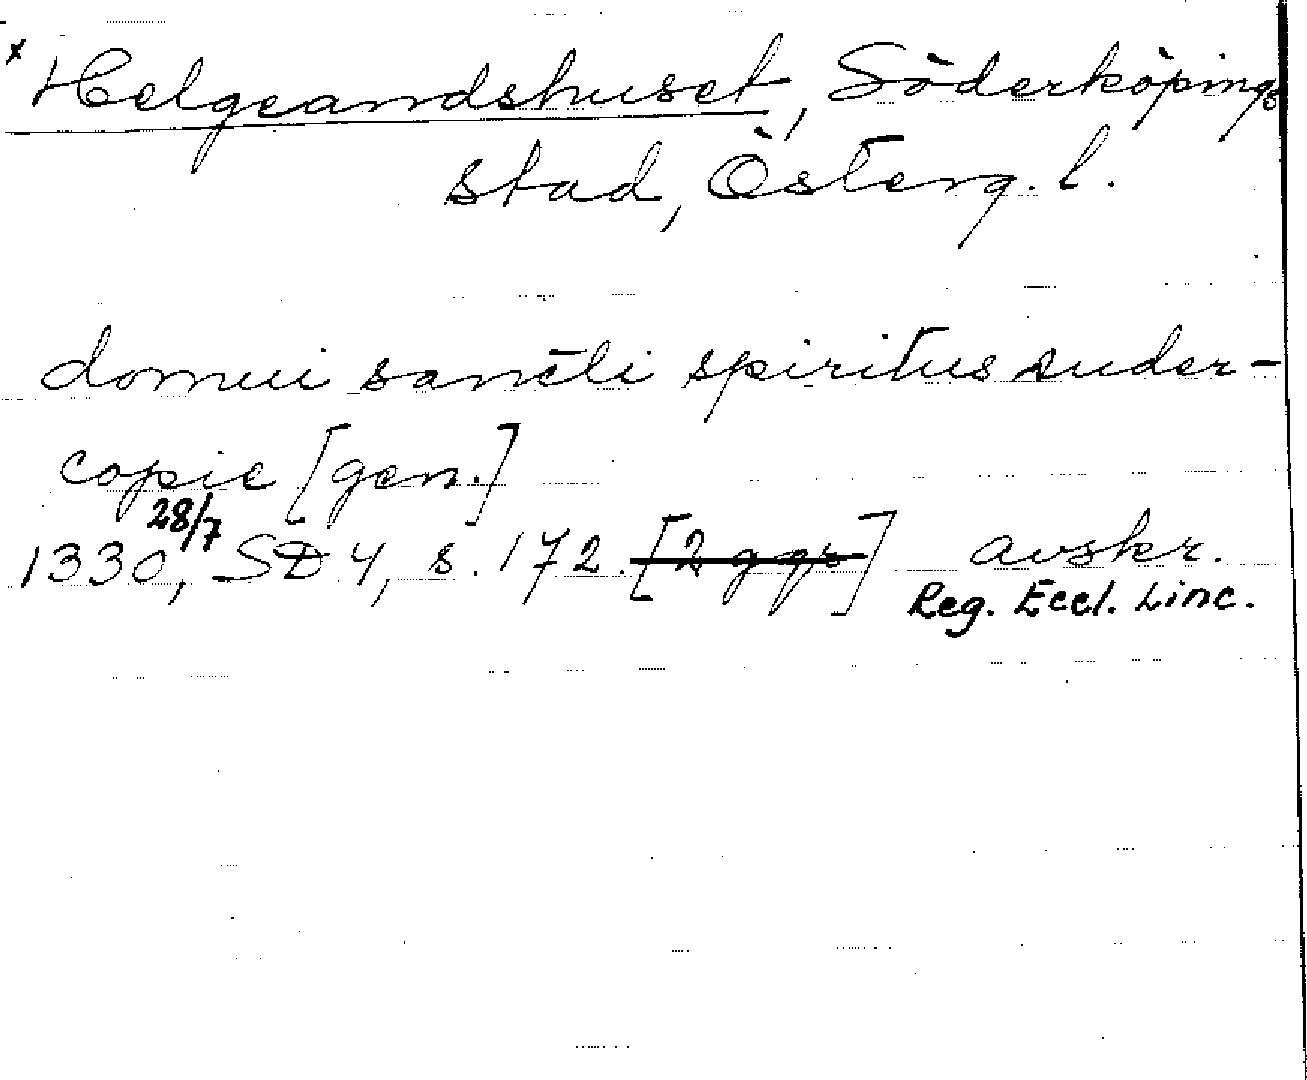 x Helgeandshuset, Söderköpings
stad, Österg. l.
domui sancti spiritus suder-
copie [gen.]
28/7
1330, SD 4, s. 172. [2 ggr] avskr.
Reg. Eccl. Linc.